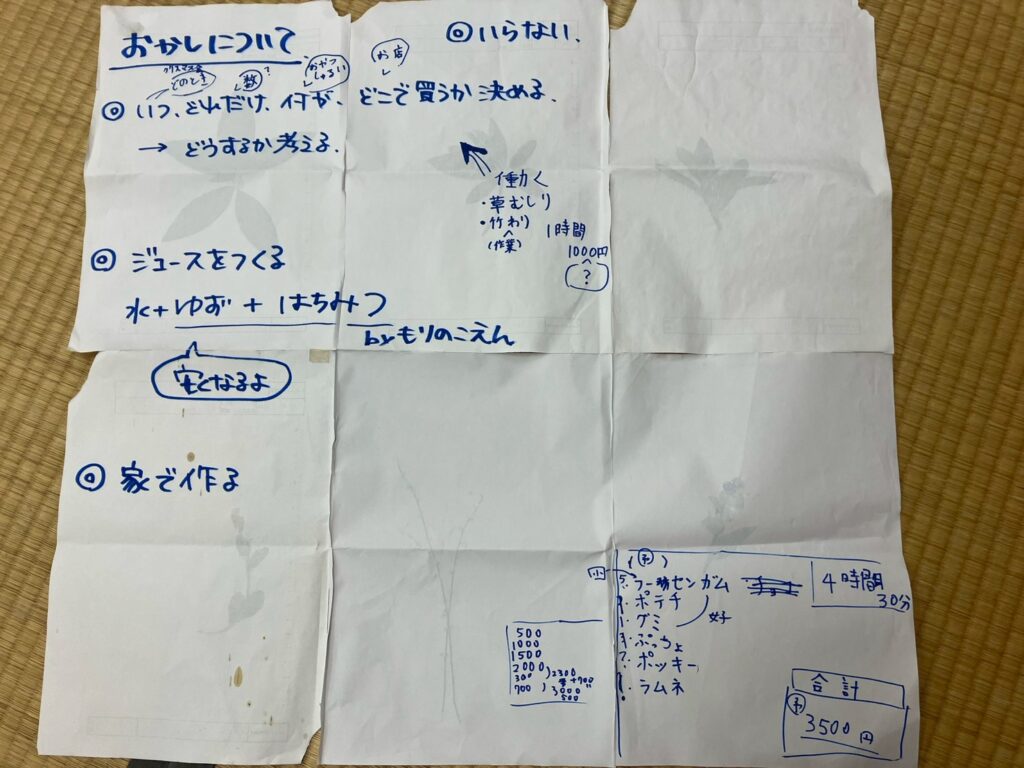 おかしについて
◎いらない。
クリスマス会
どのとき
数?
おやつ
しゅるい
お店
◎いつ、どれだけ、何が、どこで買うか決める。
→ どうするか考える。
働く
・草むしり
・竹わり
(作業)
1時間
1000円
?
◎ ジュースをつくる
水+ゆず+はちみつ
byもりのこえん
安くなるよ
◎ 家で作る
(予)
フーセンガム
ポテチ
グミ
好
ぷっちょ
ポッキー
ラムネ
4時間
30分
500
1000
1500
2000
300
2300
+700
700
3000
500
合計
予
3500円